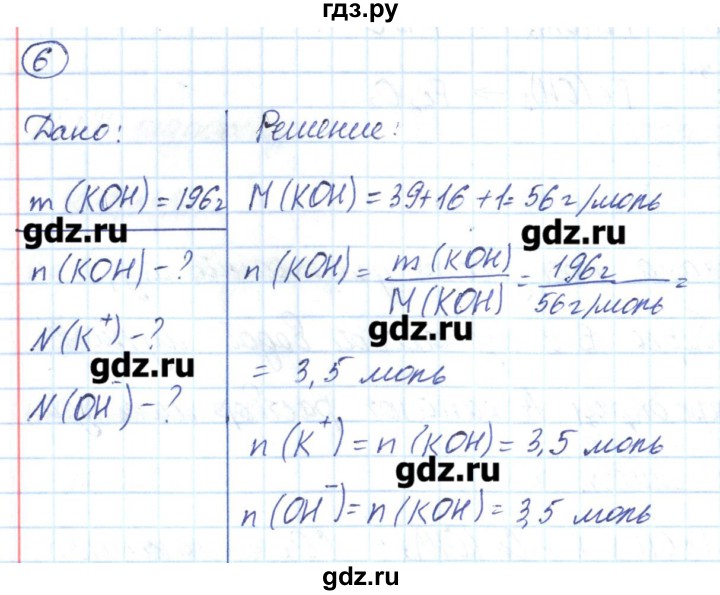 гдз.ру
6
Дано:
m (KOH) = 196г
n (KOH) - ?
N (K⁺) - ?
N (OH⁻) - ?
Решение:
M (KOH) = 39+16+1= 56г/моль
n (KOH) = m (KOH) / M (KOH) = 196г / 56г/моль =
= 3,5 моль
n (K⁺) = n (KOH) = 3,5 моль
n (OH⁻) = n (KOH) = 3,5 моль
gdz.ru
gdz.ru
gdz.ru
gdz.ru
gdz.ru
gdz.ru